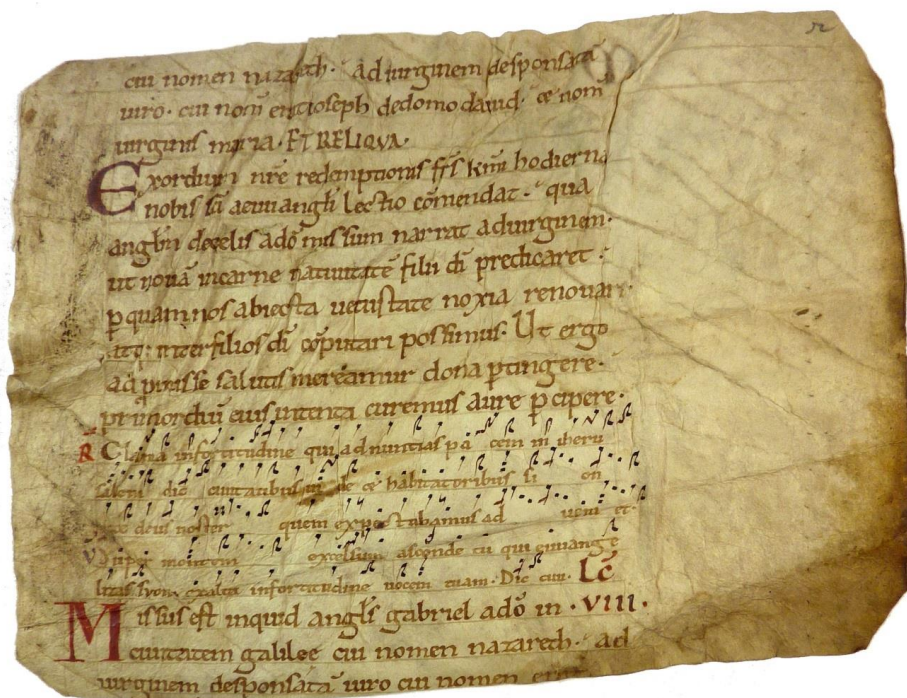 52
cui nomen nazareth· ad uirginem desponsatā
uiro· cui nom̄ erat ioseph de domo dauid· & nom̄
uirginis maria· ET RELIQVA·
Exordium nr̄e redemptionis fr̄s km̄i hodierna
nobis sc̄i aeuuangl̄ii lectio cōmendat· qua
angl̄m de celis a dō missum narrat ad uirginem·
ut nouā in carne natiuitatē filii dī predicaret·
p quam nos abiecta uetustate noxia renouari·
atq; inter filios dī cōputari possimus· Ut ergo
ad pmisse salutis mereamur dona ptingere·
primordiū eius intenta curemus aure pcipere·
R Clama in fortitudine qui adnuntias pacem in iheru
salem dic ciuitatibus iude & habitatoribus sion
ecce deus noster quem expectabamus adueniet·
V Super montem excelsum ascende tu qui euuange
lizas syon exalta in fortitudine uocem tuam· Dic ciui· Lc̄
Missus est inquid angl̄s gabriel a dō in · VIII·
ciuitatem galilee cui nomen nazareth· ad
uirginem desponsatā uiro cui nomen erat